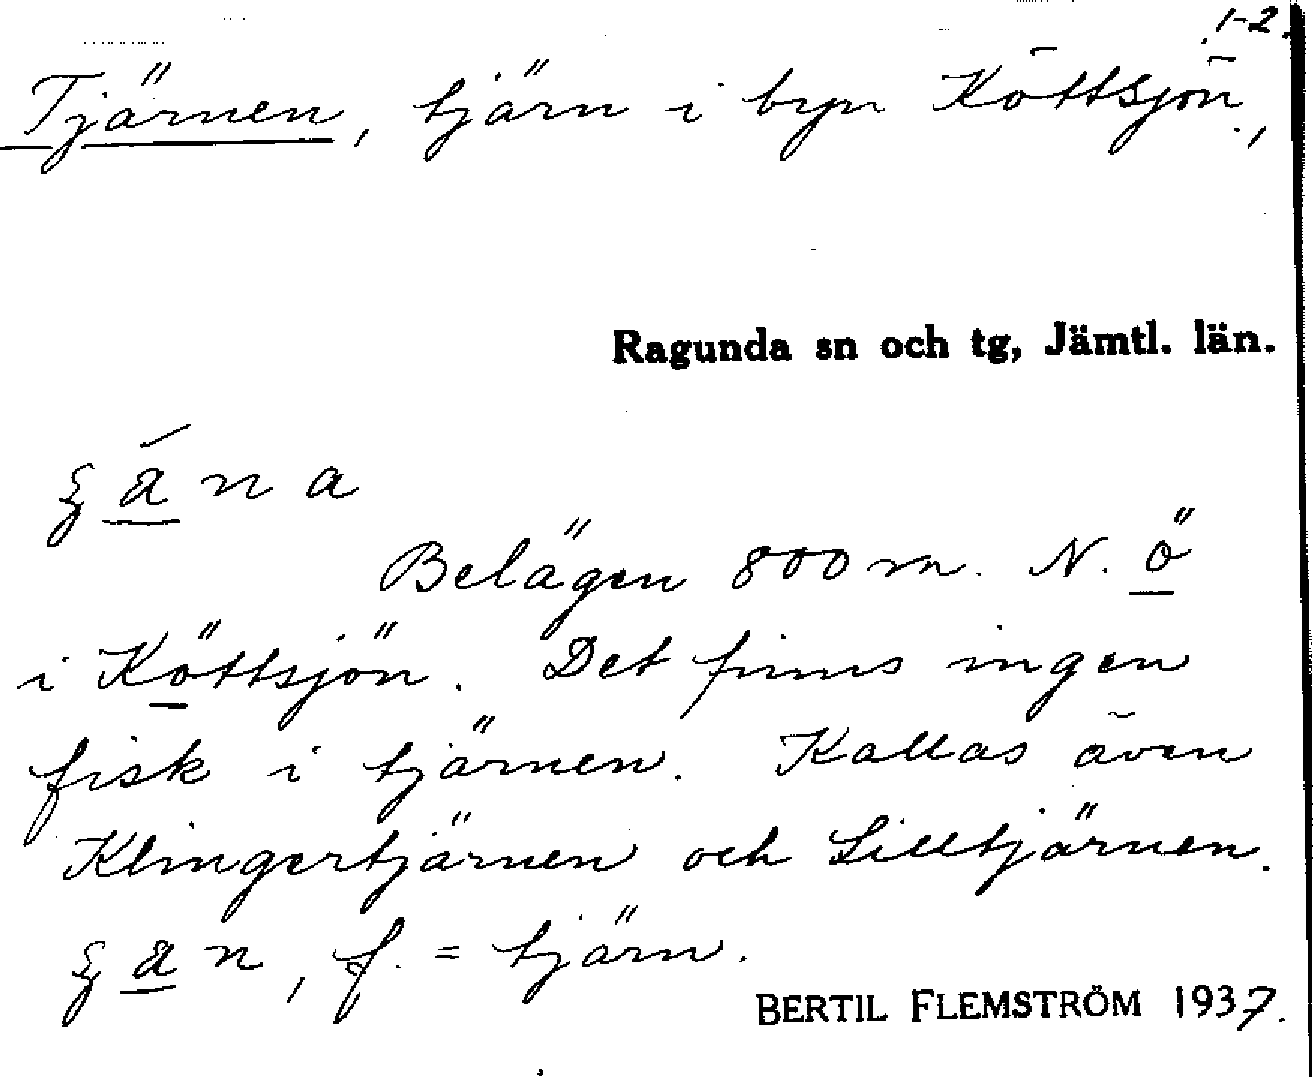 1-2.
Tjärnen, tjärn i byn Köttsjön,
Ragunda sn och tg, Jämtl. län.
ꞩ a n a
Belägen 800 m. N. ö
i Köttsjön. Det finns ingen
fisk i tjärnen. Kallas även
Klingertjärnen och Lilltjärnen.
a n, f. = tjärn.
BERTIL FLEMSTRÖM 1937.